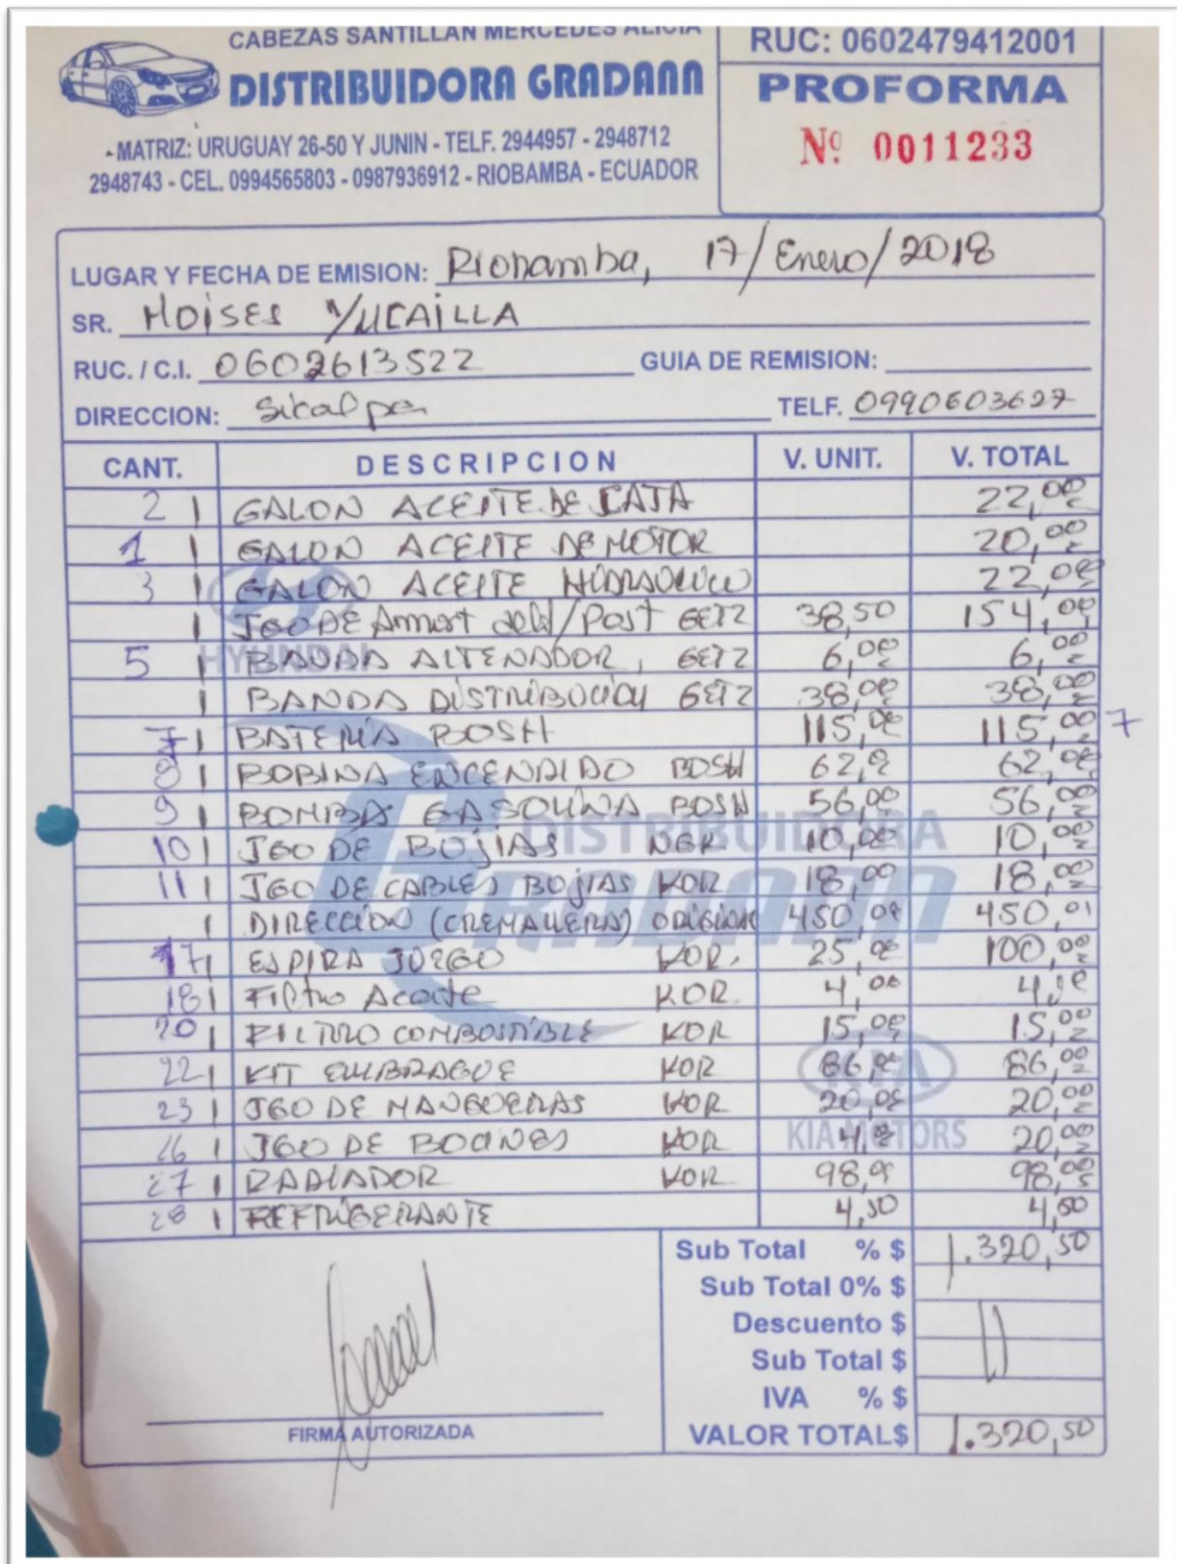 CABEZAS SANTILLAN MERCEDES ALICIA
DISTRIBUIDORA GRADANN
- MATRIZ: URUGUAY 26-50 Y JUNIN - TELF. 2944957 - 2948712
2948743 - CEL. 0994565803 - 0987936912 - RIOBAMBA - ECUADOR
RUC: 0602479412001
PROFORMA
Nº 0011233
LUGAR Y FECHA DE EMISION: Riobamba, 17/Enero/2018
SR. MOISES YUCAILLA
RUC. / C.I. 0602613522 GUIA DE REMISION:
DIRECCION: Sicalpa TELF. 0990603627
CANT. DESCRIPCION V. UNIT. V. TOTAL
2 1 GALON ACEITE DE CAJA 22,00
1 1 GALON ACEITE DE MOTOR 20,00
3 1 GALON ACEITE HIDRAULICO 22,00
1 JGO DE Amort del/Post GETZ 38,50 154,00
5 1 BANDA ALTENADOR, GETZ 6,00 6,00
1 BANDA DISTRIBUCIÓN GETZ 38,00 38,00
7 1 BATERIA BOSH 115,00 115,00 7
8 1 BOBINA ENCENDIDO BOSH 62,00 62,00
9 1 BOMBA GASOLINA BOSH 56,00 56,00
10 1 JGO DE BUJIAS NGK 10,00 10,00
11 1 JGO DE CABLES BUJIAS KOR 18,00 18,00
1 DIRECCIÓN (CREMALLERA) ORIGINAL 450,00 450,01
17 1 ESPIRA JUEGO KOR. 25,00 100,00
18 1 Filtro Aceite KOR. 4,00 4,00
20 1 FILTRO COMBUSTIBLE KOR 15,00 15,00
22 1 KIT EMBRAGUE KOR 86,00 86,00
23 1 JGO DE MANGUERAS KOR 20,00 20,00
26 1 JGO DE BOCINES KOR 4,00 20,00
27 1 RADIADOR KOR 98,00 98,00
28 1 REFRIGERANTE 4,50 4,50
HYUNDAI
DISTRIBUIDORA
GRADANN
KIA
KIA MOTORS
Sub Total % $ 1.320,50
Sub Total 0% $
Descuento $
Sub Total $
IVA % $
VALOR TOTAL $ 1.320,50
FIRMA AUTORIZADA